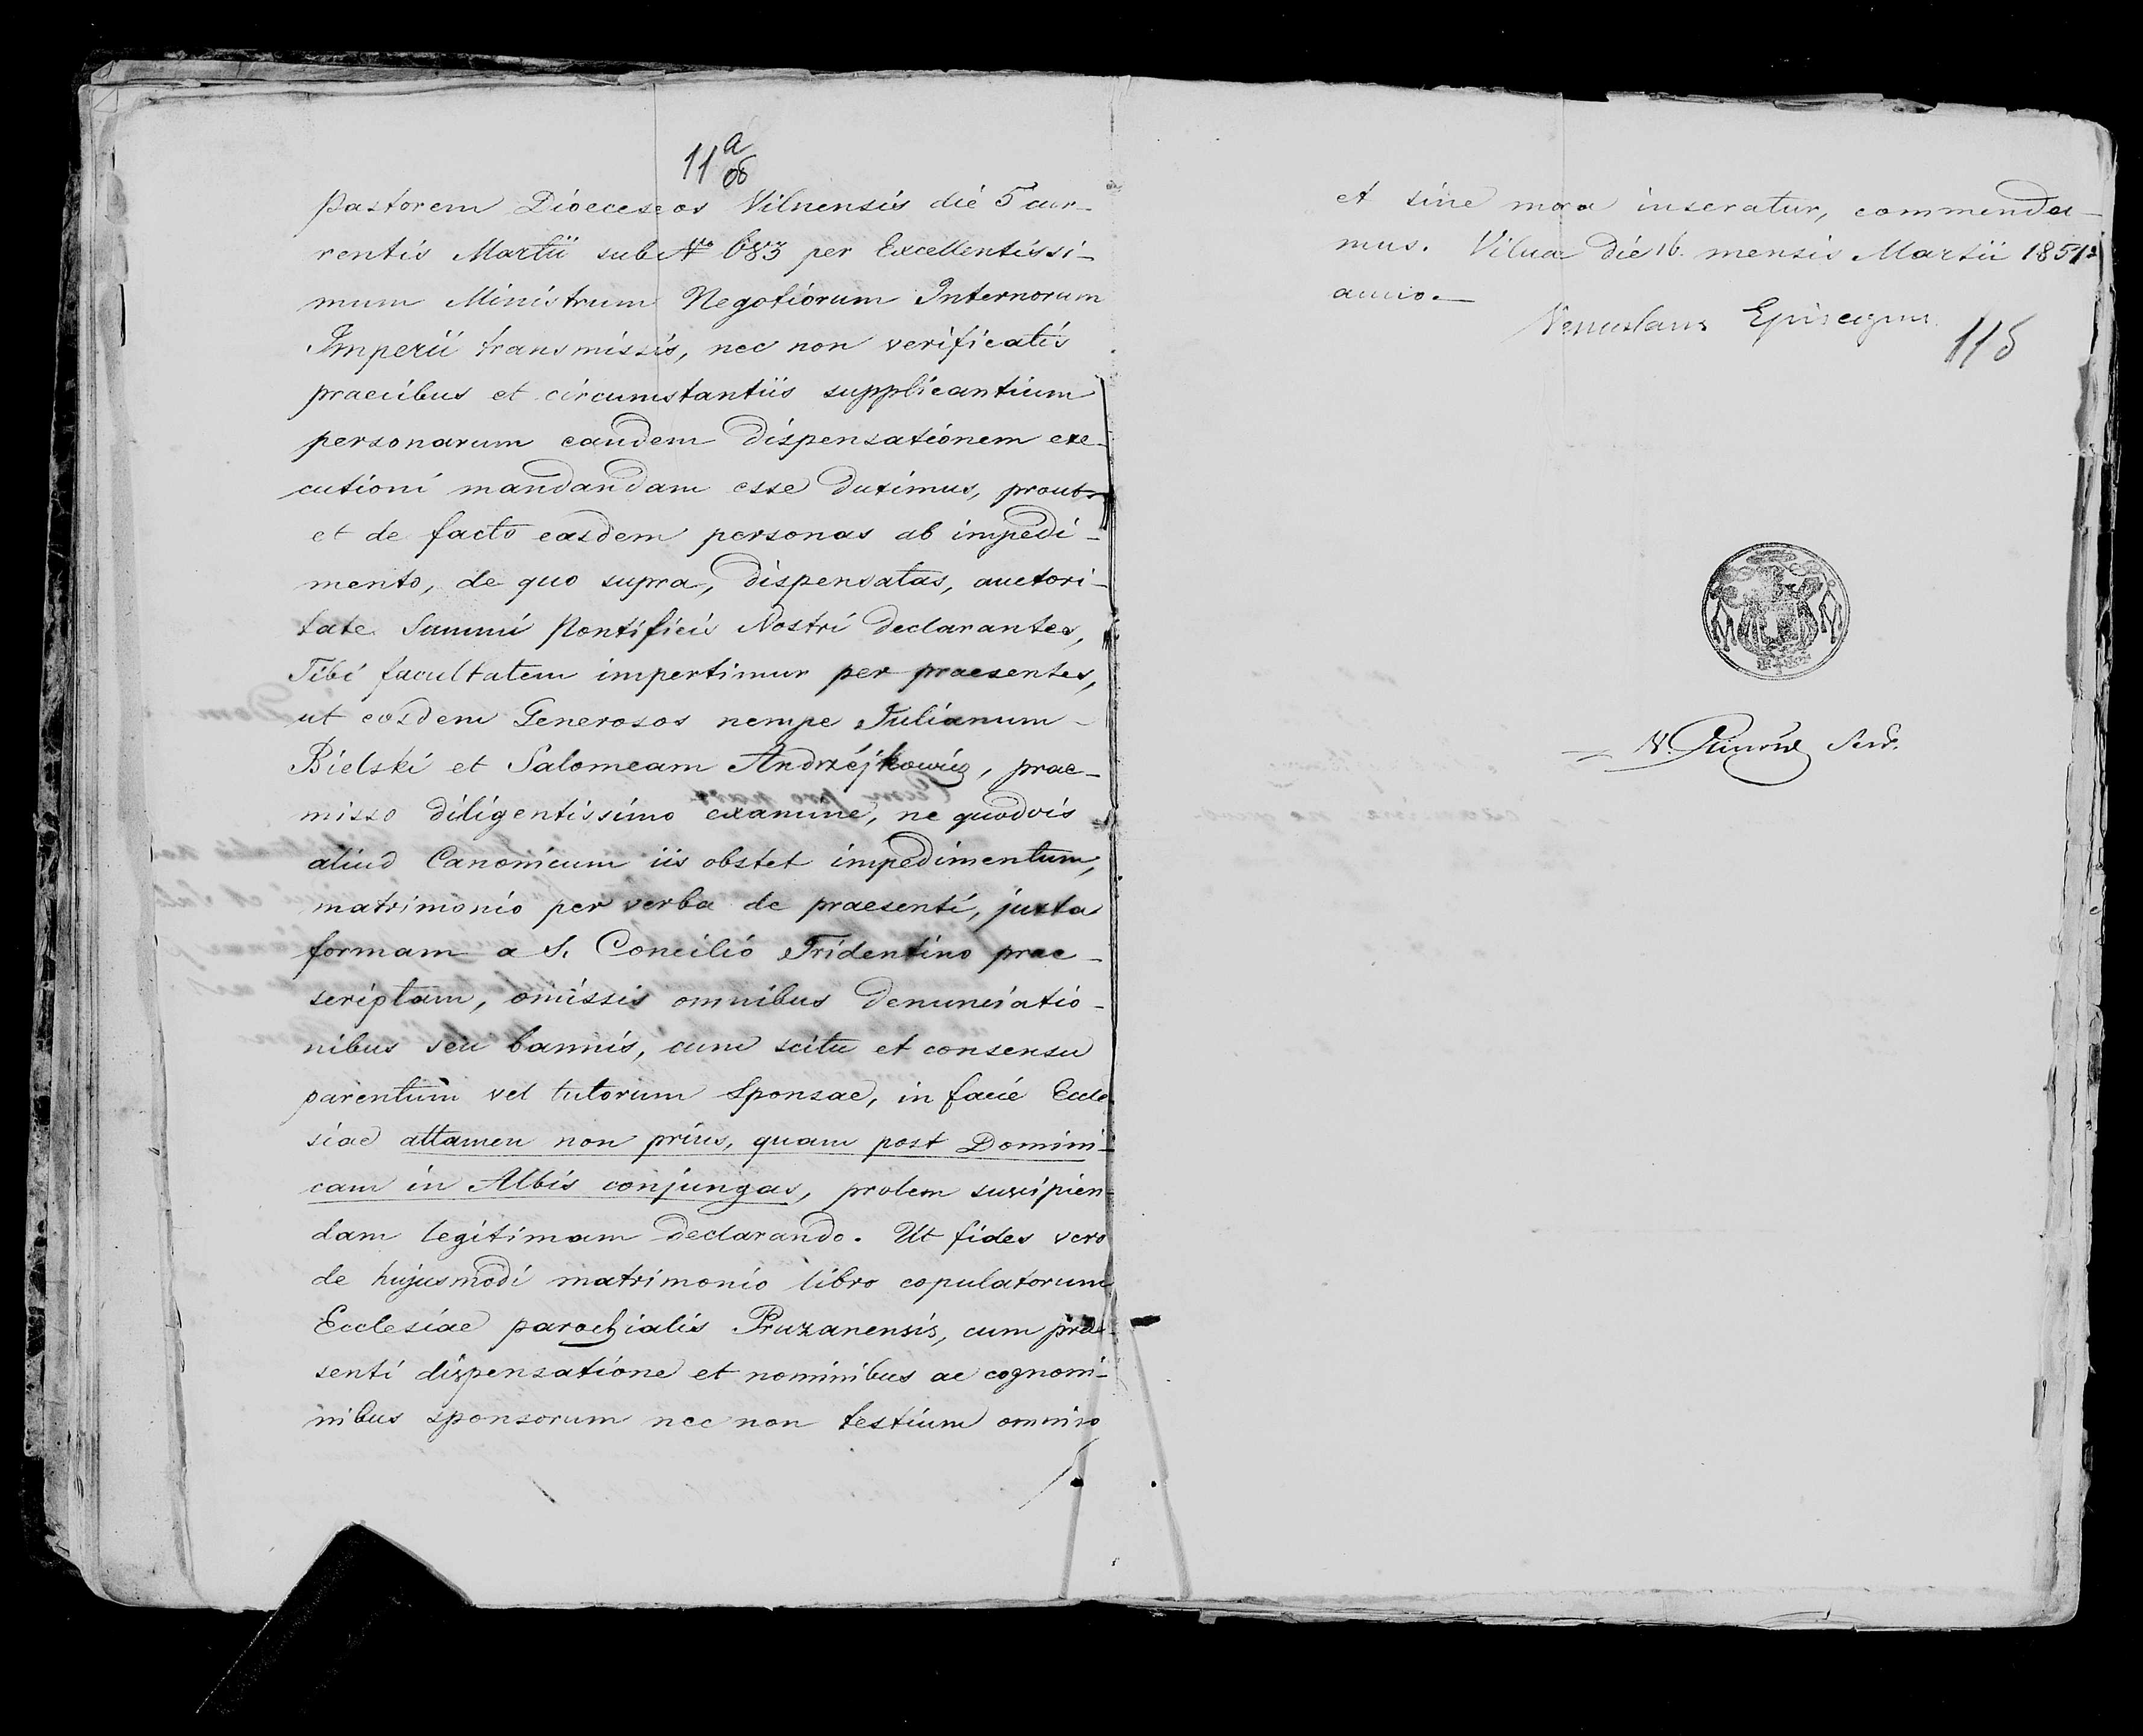 11 a
pastorem Dioeceseos Vilnensis die 5 cur-
rentis Martii sub N 683 per Excellentissi-
mum Ministrum Negotiorum Internorum
Imperii transmissis, nec non verificatis
praecibus et circumstantiis supplicantium
personarum eandem dispensationem exe-
cutioni mandandam esse duximus, prout
et de facto easdem personas ab impedi-
mento, de quo supra, dispensatas, auctori-
tate Summi Pontificis Nostri declarantes,
Tibi facultatem impertimur per praesentes,
ut eosdem Generosos nempe Julianum
Bielski et Salomeam Andrzéjkowicz, prae-
misso diligentissimo examine, ne quodvis
aliud Canonicum iis obstet impedimentum,
matrimonio per verba de praesenti, juxta
formam a S. Concilio Tridentino prae-
scriptam, omissis omnibus denunciatio-
nibus seu bannis, cum scitu et consensu
parentum vel tutorum Sponsae, in facie Eccle
siae attamen non prius, quam post Domini-
cam in Albis conjungas, prolem suscipien-
dam legitimam declarando. Ut fides vero
de hujusmodi matrimonio libro copulatorum
Ecclesiae parochialis Pruzanensis, cum prae-
senti dispensatione et nominibus ac cognomi-
nibus sponsorum nec non testium omnino
et sine mora inseratur, commenda-
mus. Vilnae die 16. mensis Martii 1851
anno.
Venceslaus Episcopus
115